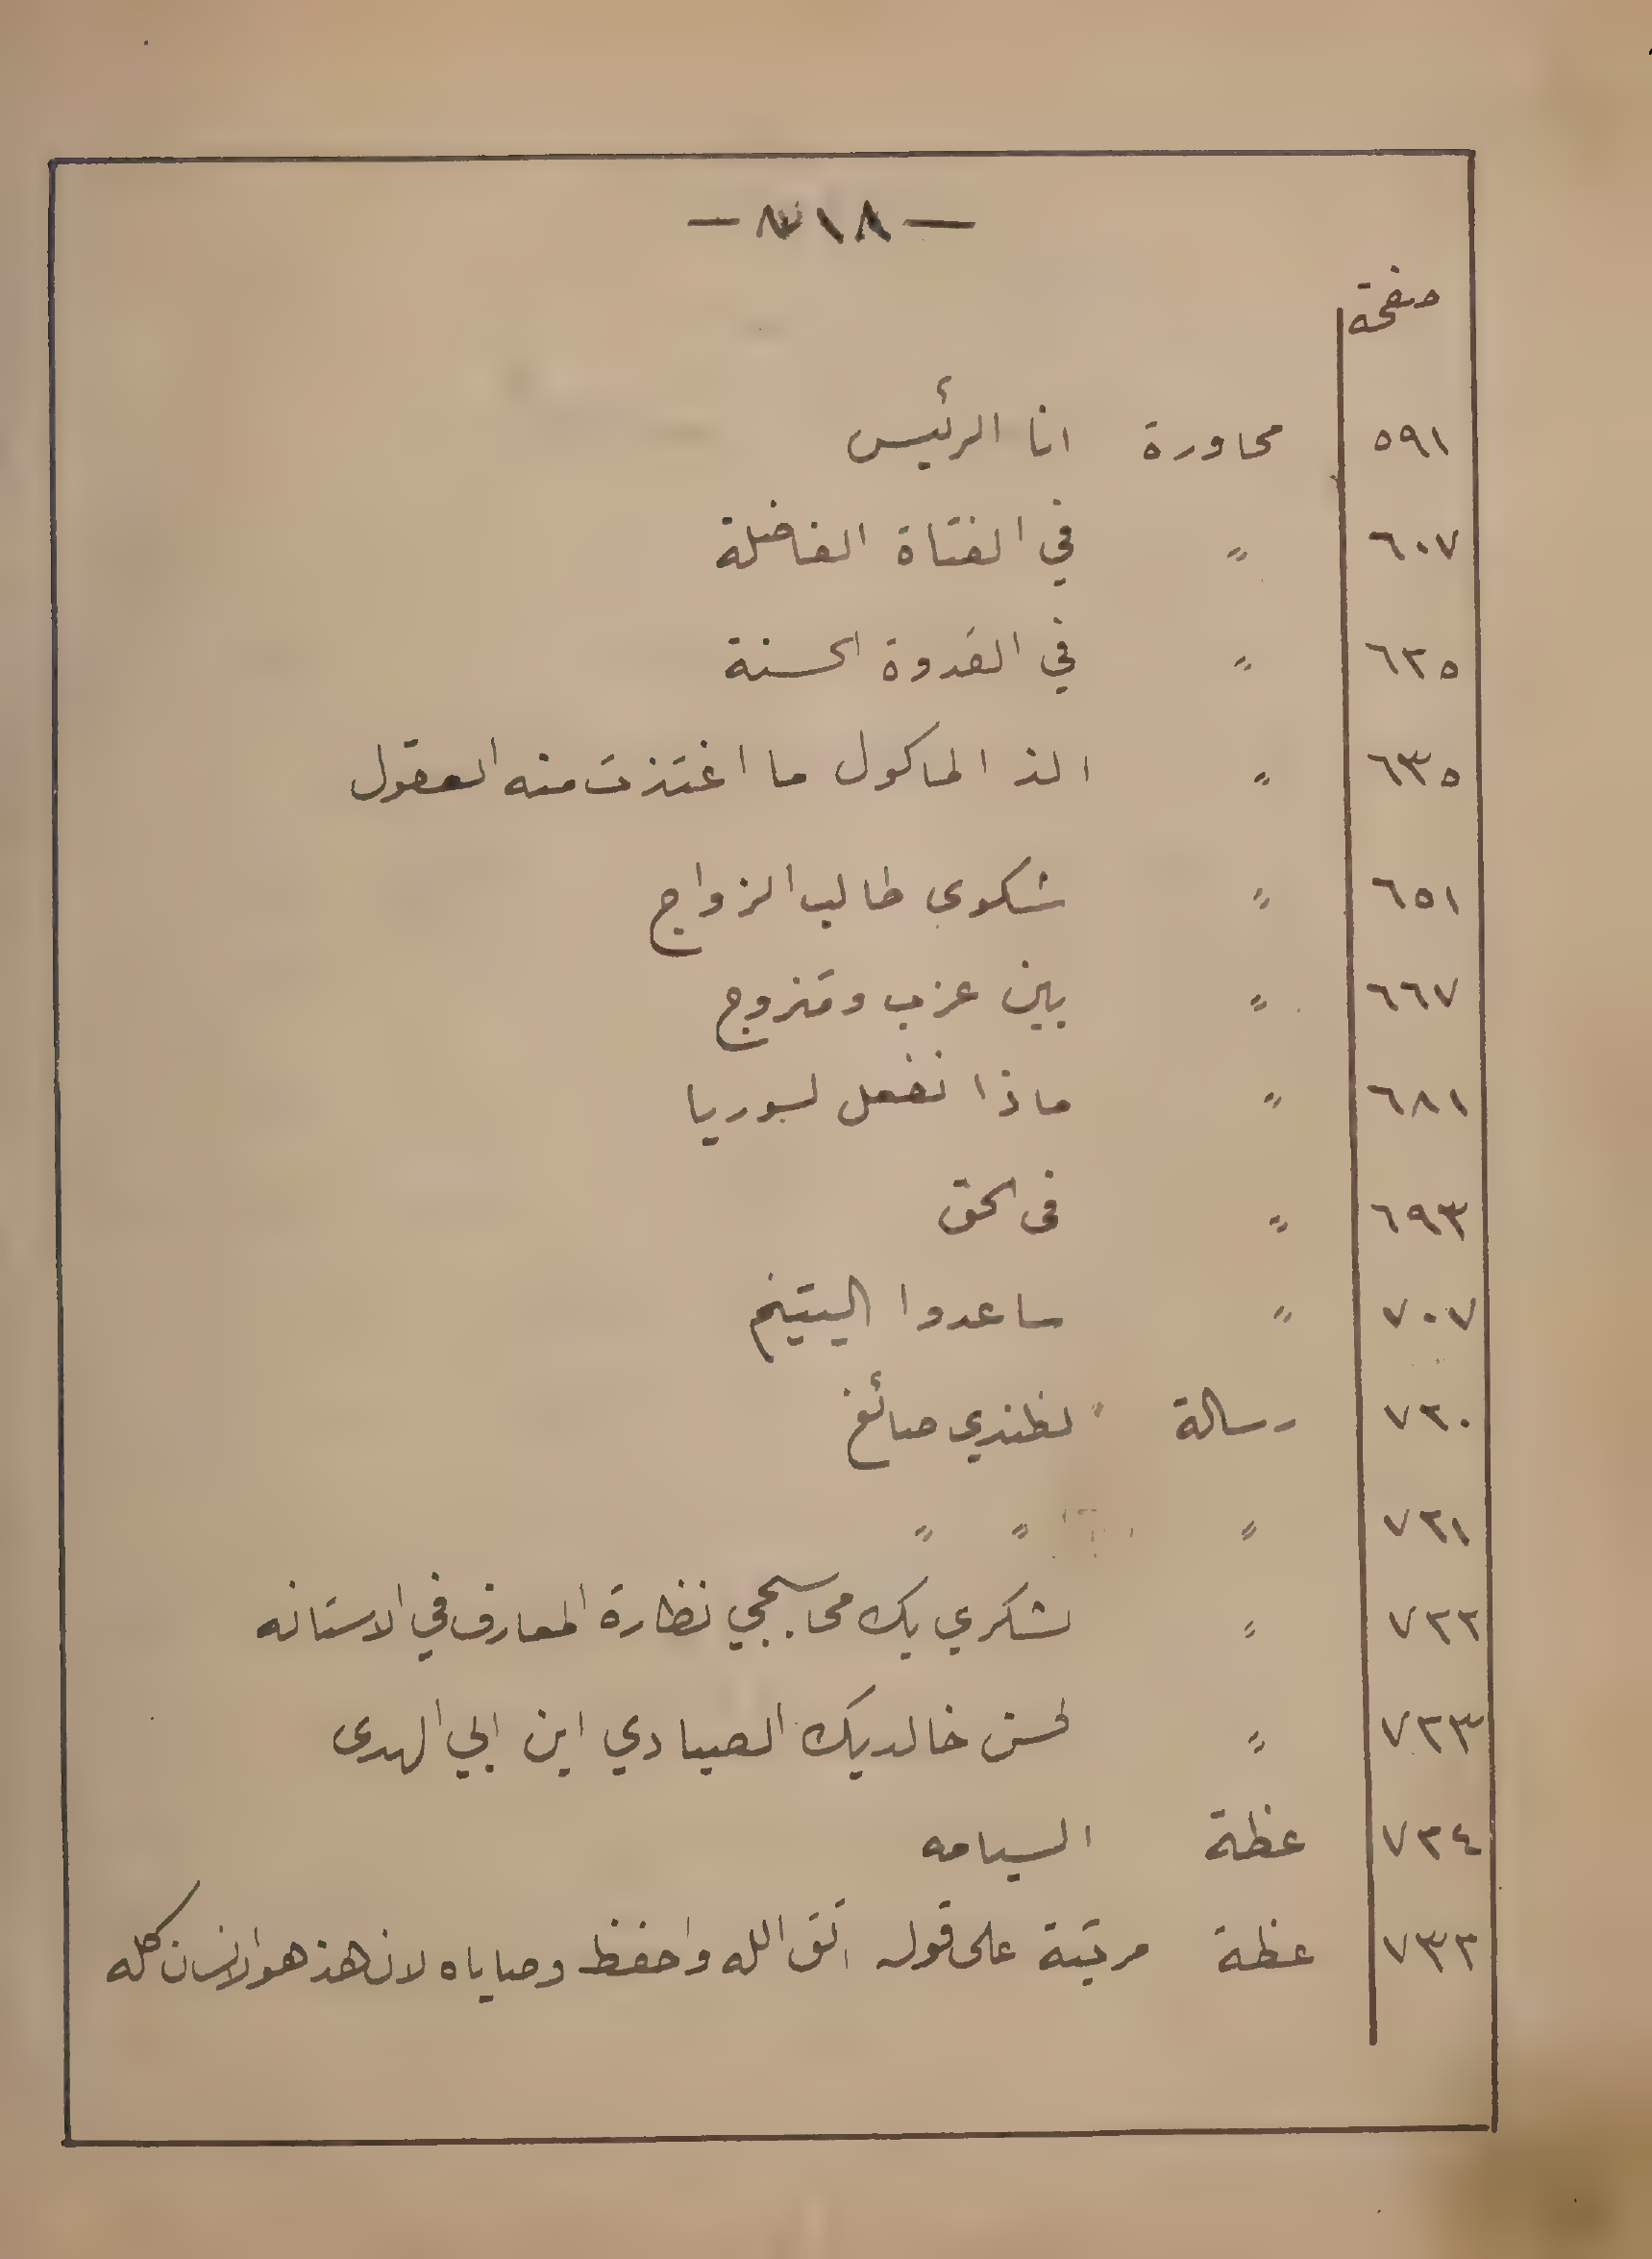 صفحة
٥٩١ محاورة انا الرئيس
٦٠٧ " في الفتاة الفاضلة
٦٢٥ " في القدوة الحسنة
٦٣٥ " الذ الماكول ما اغتذت منه العقول
٦٥١ " شكوى طالب الزواج
٦٦٧ " بين عزب ومتزوج
٦٨١ " ماذا نفعل لسوريا
٦٩٣ " في الحق
٧٠٧ " ساعدوا اليتيم
٧٢٠ رسالة لظندي صائغ
٧٢١ " " "
٧٢٢ " لشكري بك محاسبجي نظارة المعارف في الاستانه
٧٢٣ " لحسن خالد بك الصيادي ابن ابي الهدى
٧٢٤ عظة السيامه
٧٣٢ عظة مرتبة على قوله اتق الله واحفظ وصاياه لان هذ هو الانسان كله